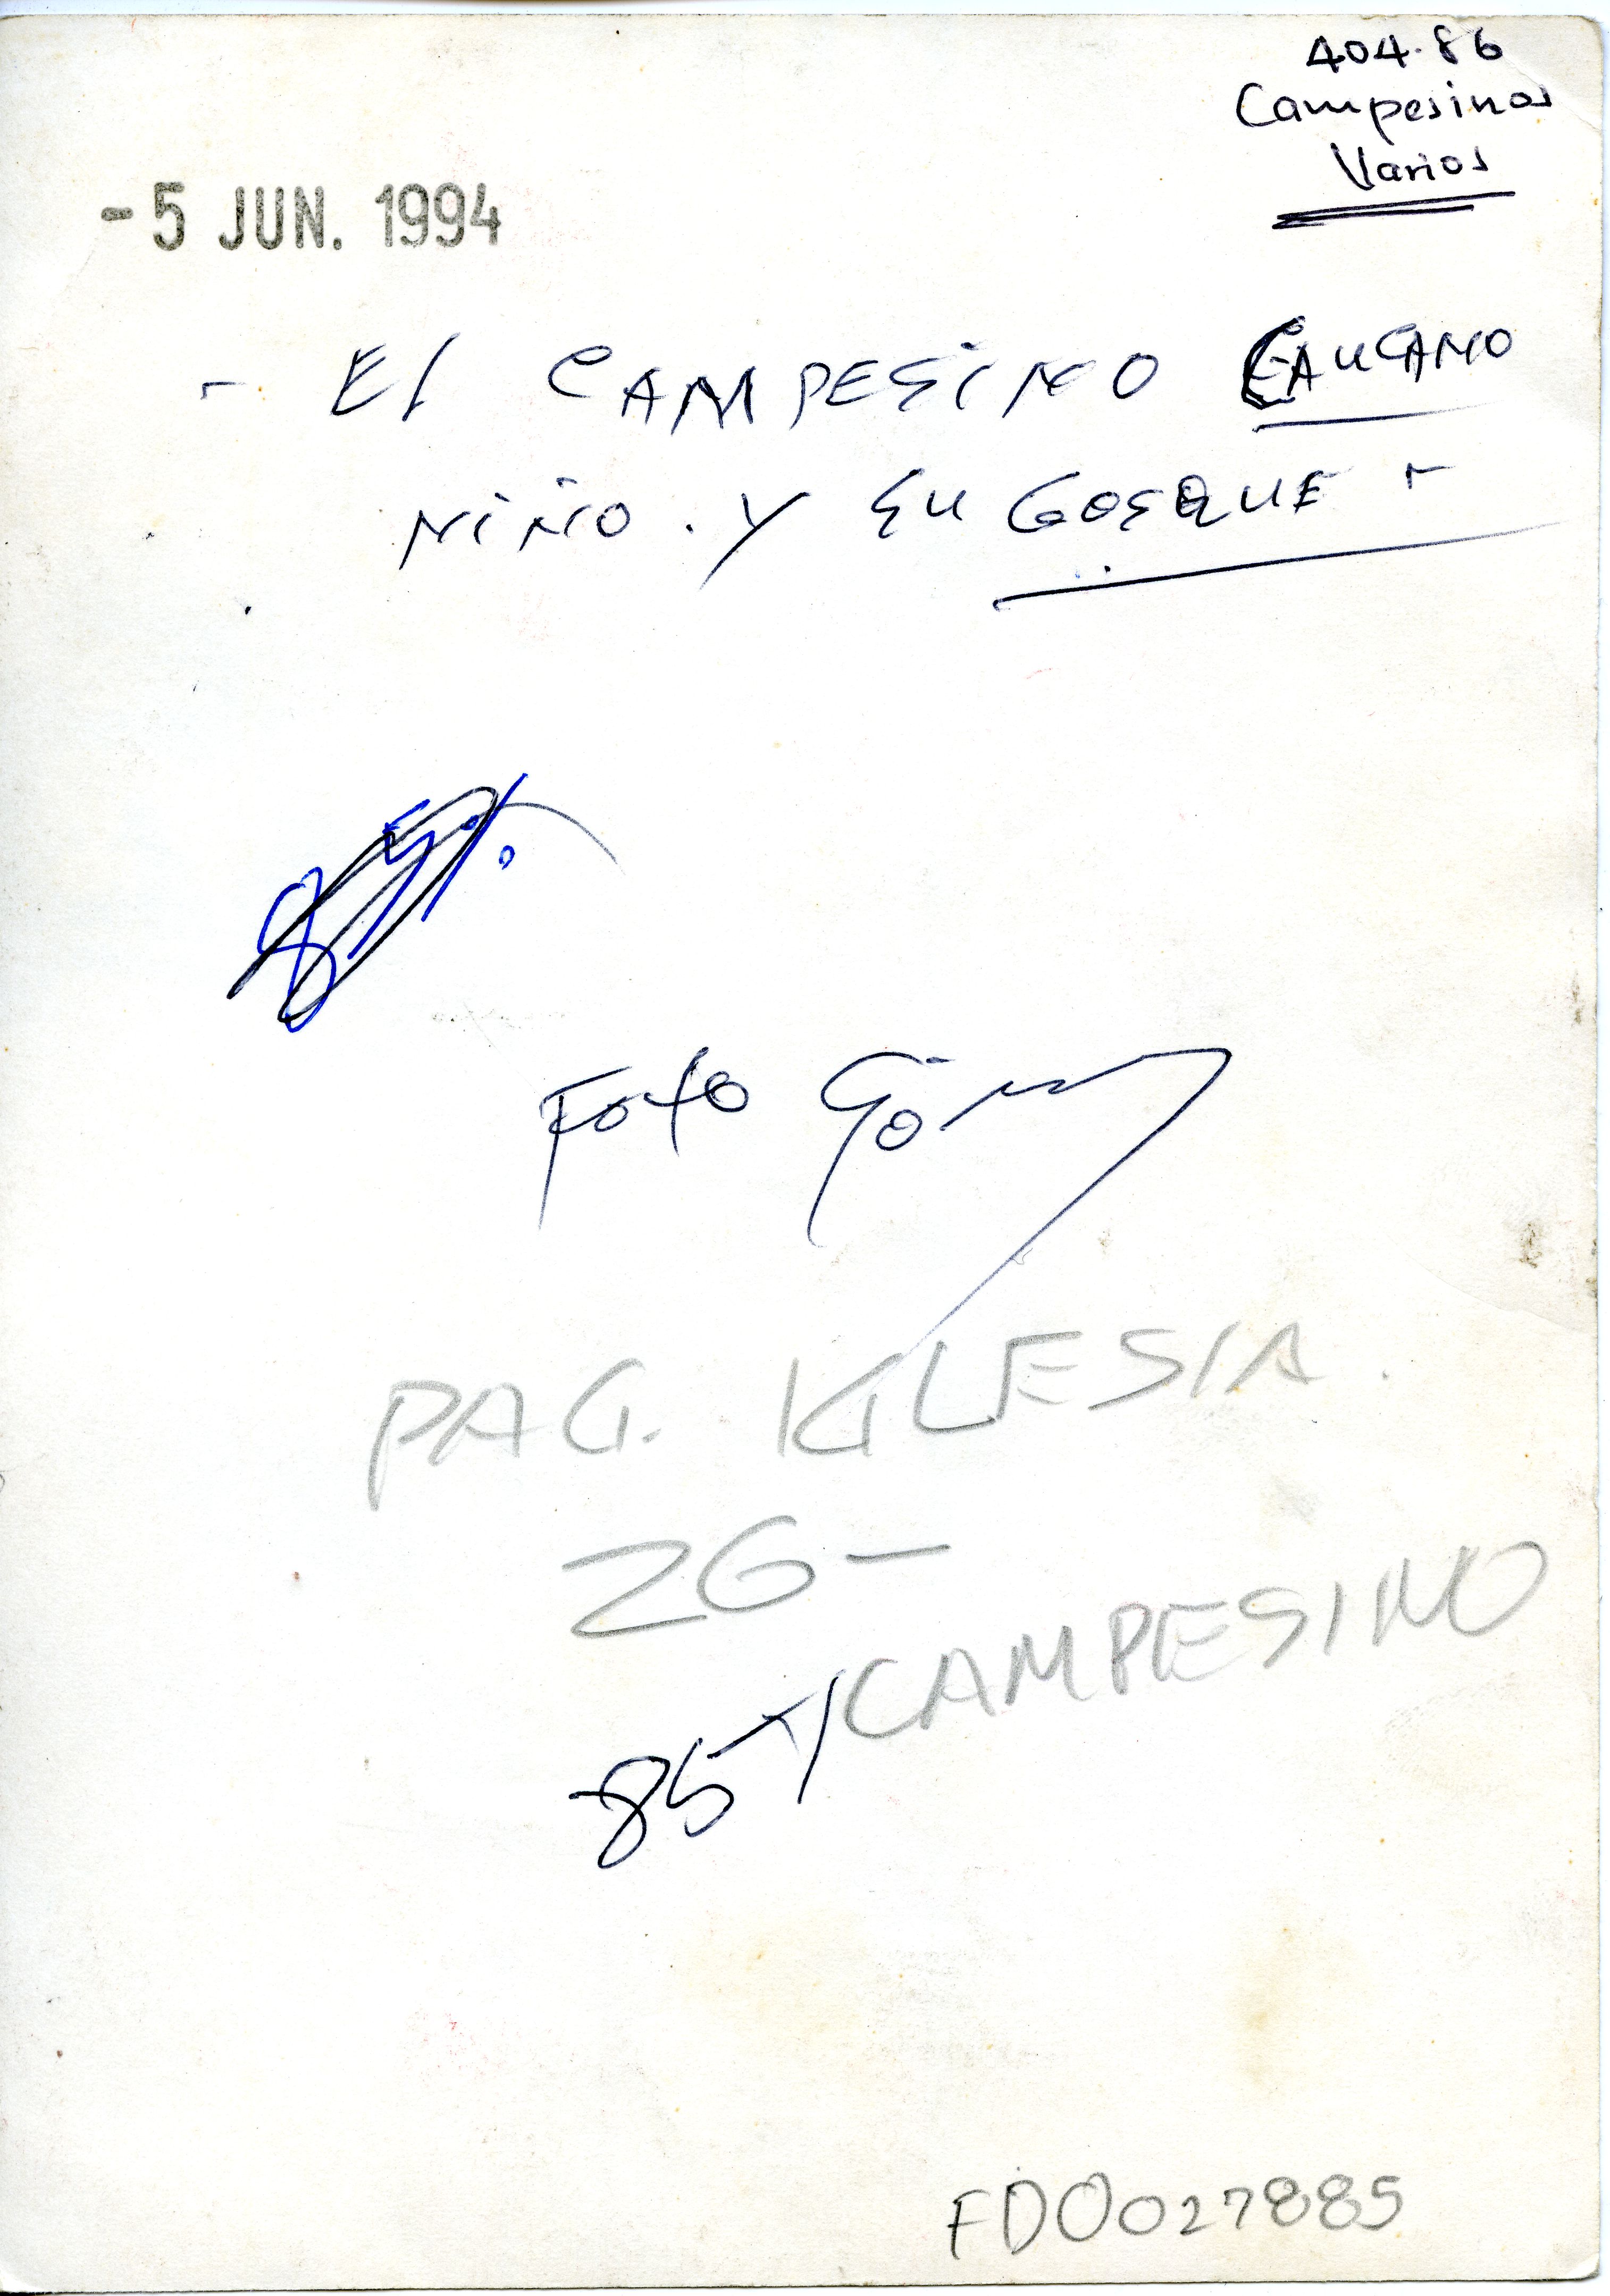 404-86
Campesinos
Varios
- 5 JUN. 1994
- El CAMPESINO CAUCANO
NIÑO. Y SU GOSQUE -
Foto
PAG. IGLESIA.
2G-
CAMPESINO
85%
FD0027885